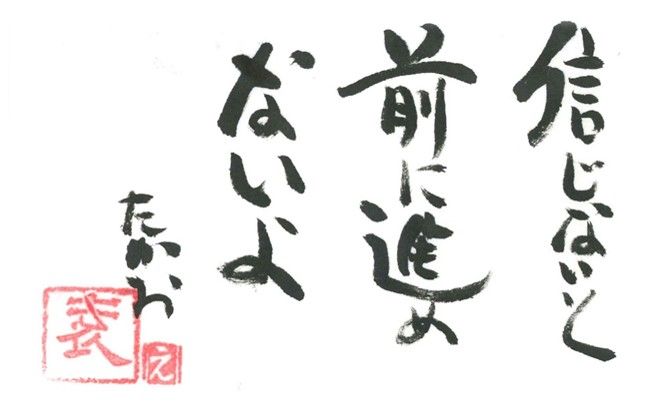 信じないと
前に進め
ないよ
たかお
え